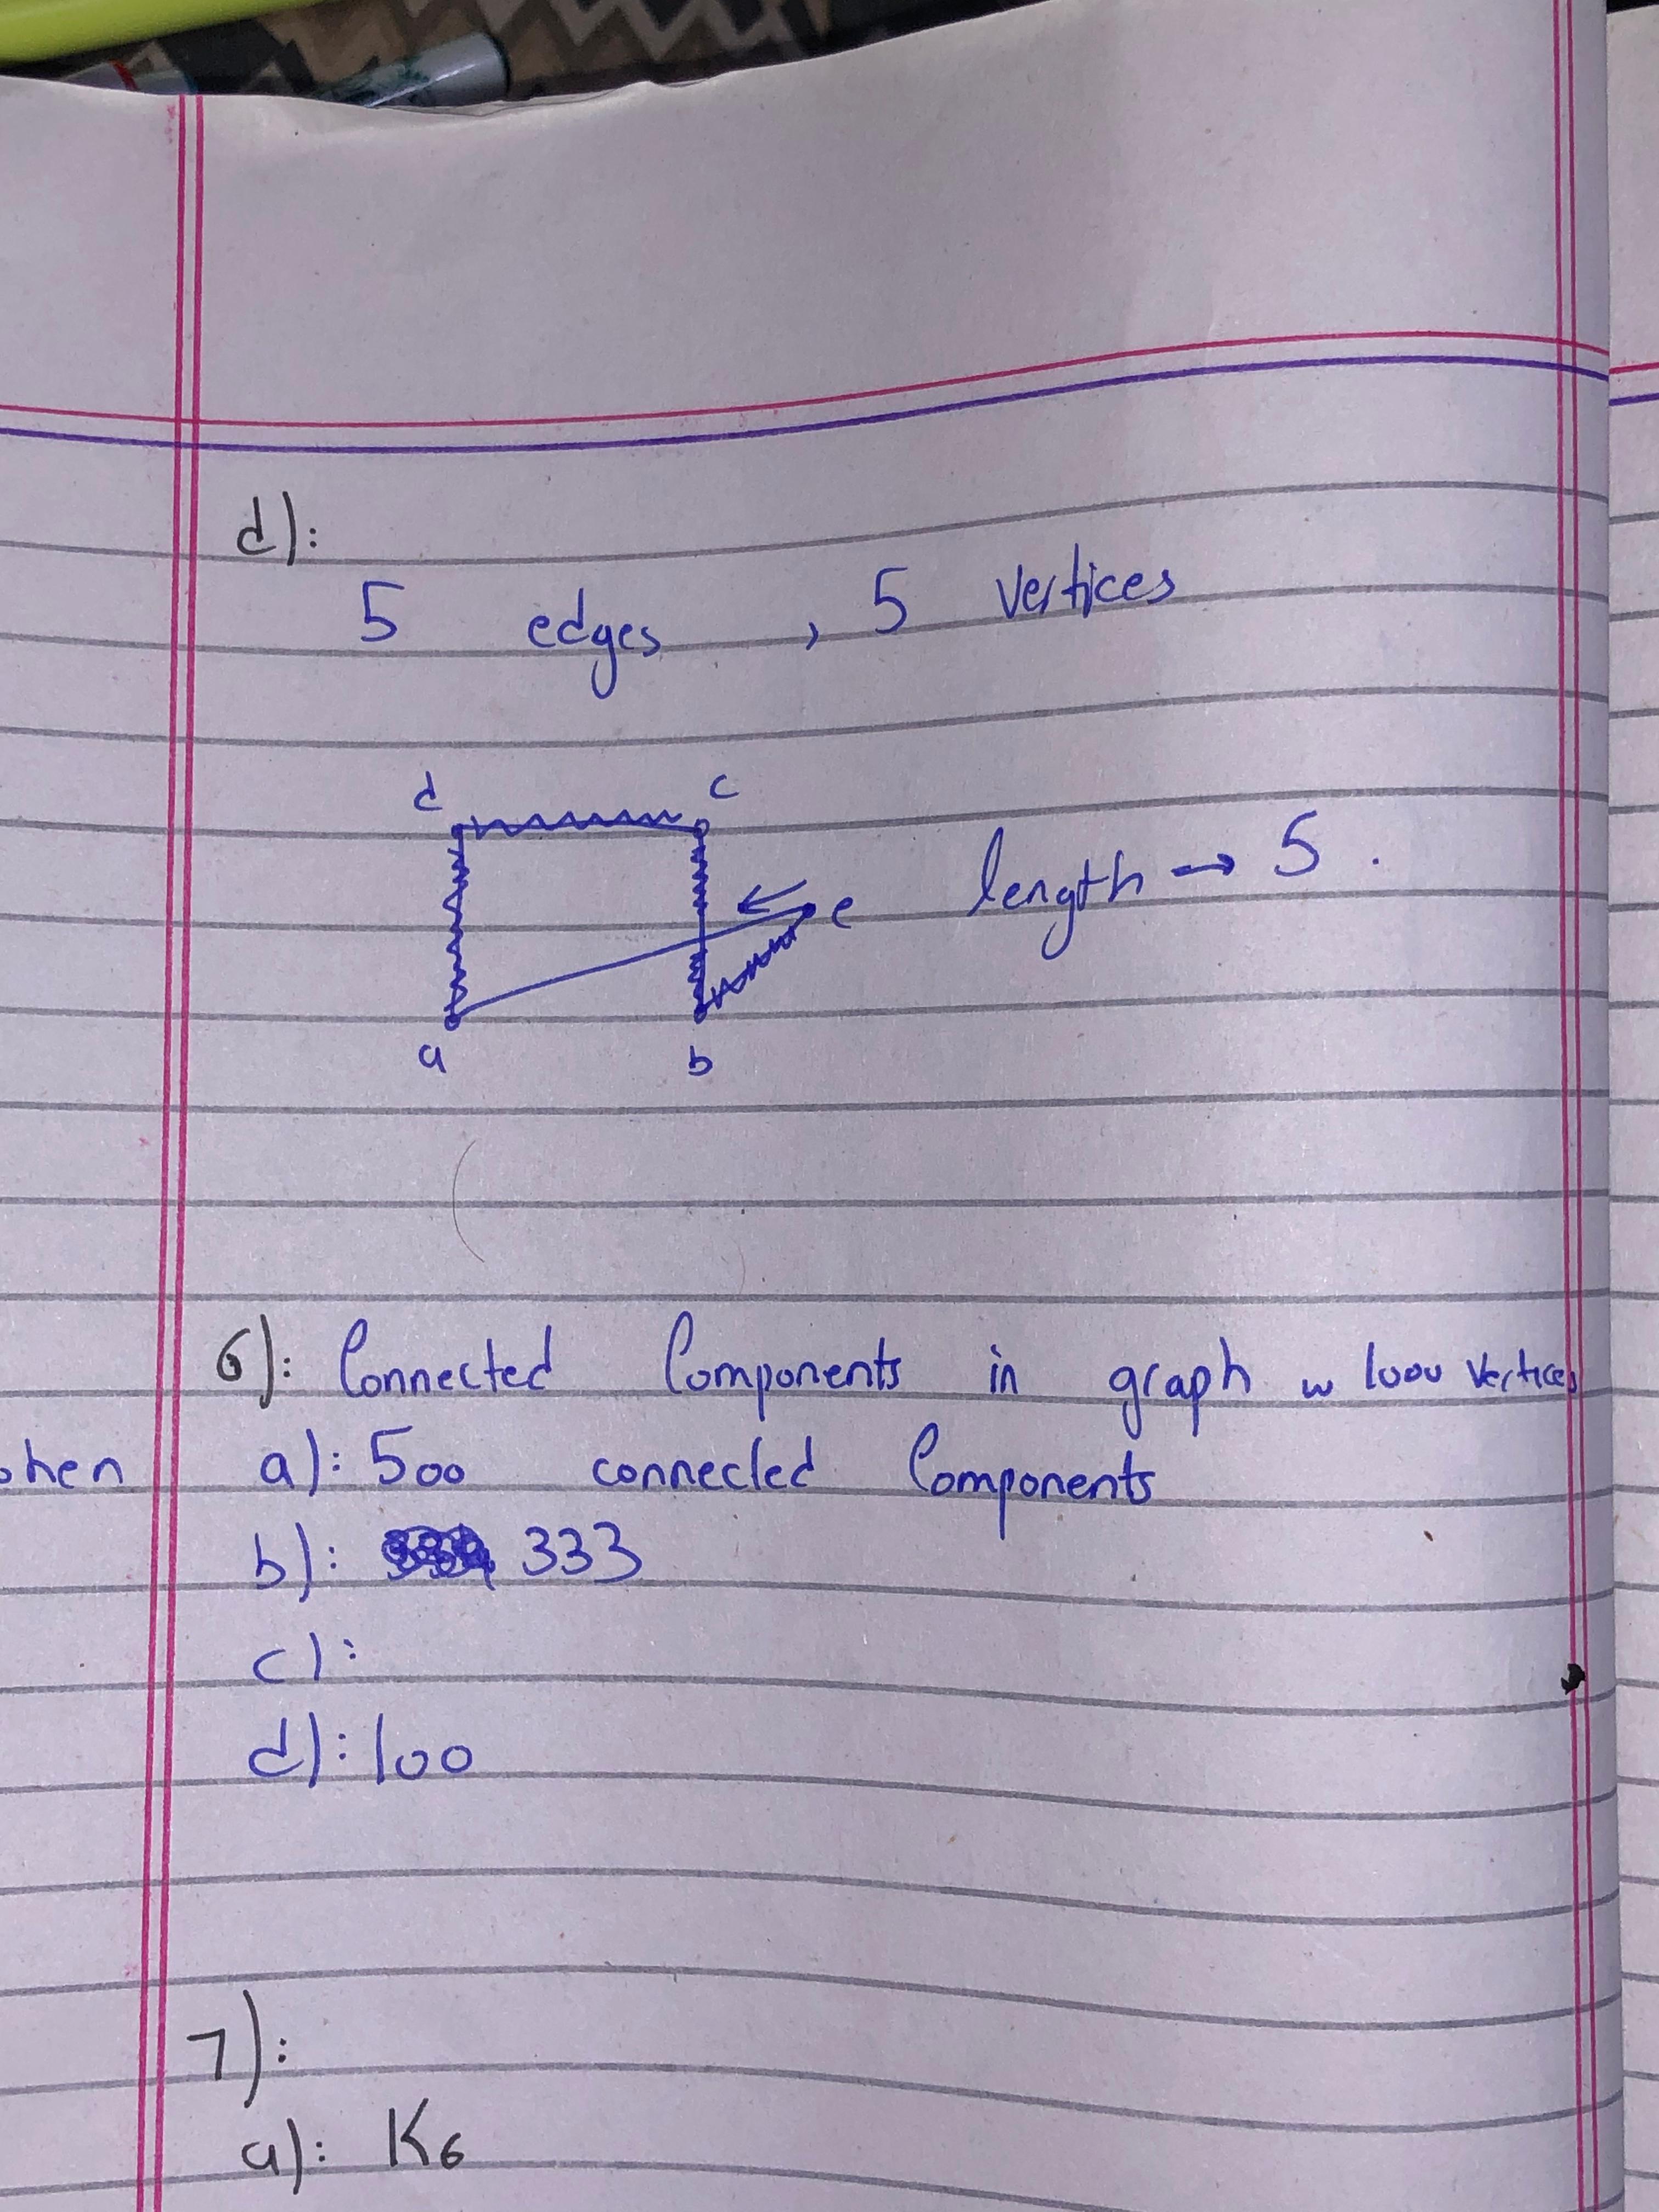 d):
5 edges , 5 vertices
d c
e length → 5 .
a b
6): Connected Components in graph w 1000 vertices
when a): 500 connected Components
b): 333
c):
d): 100
7):
a): K6